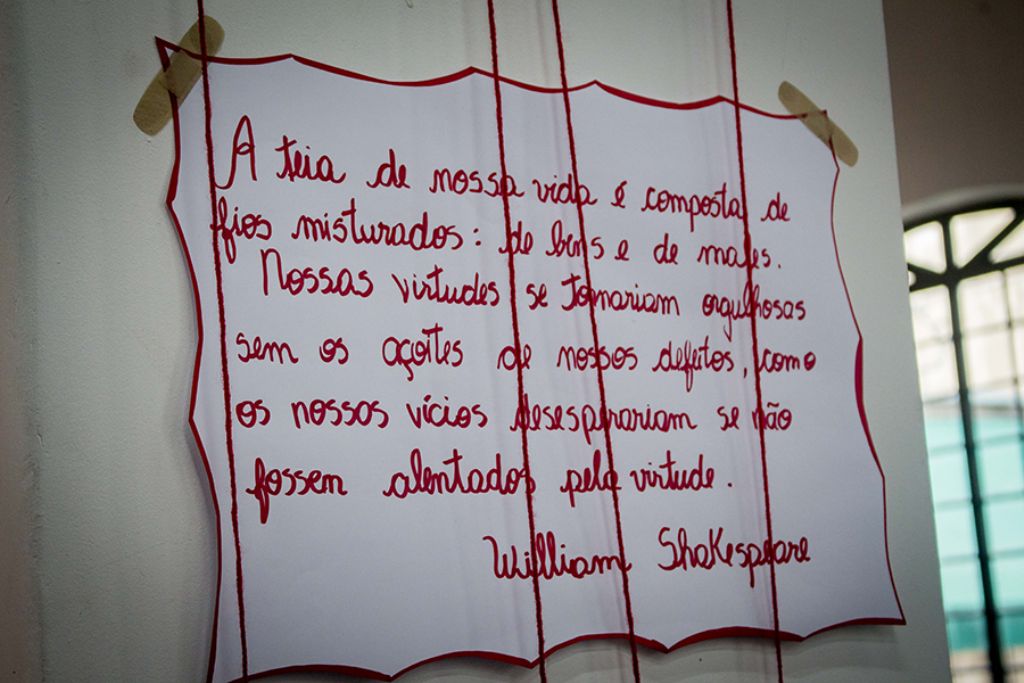 A teia de nossa vida é composta de
fios misturados: de bens e de males.
Nossas virtudes se tornariam orgulhosas
sem os açoites de nossos defeitos, como
os nossos vícios desesperariam se não
fossem alentados pela virtude.
William Shakespeare